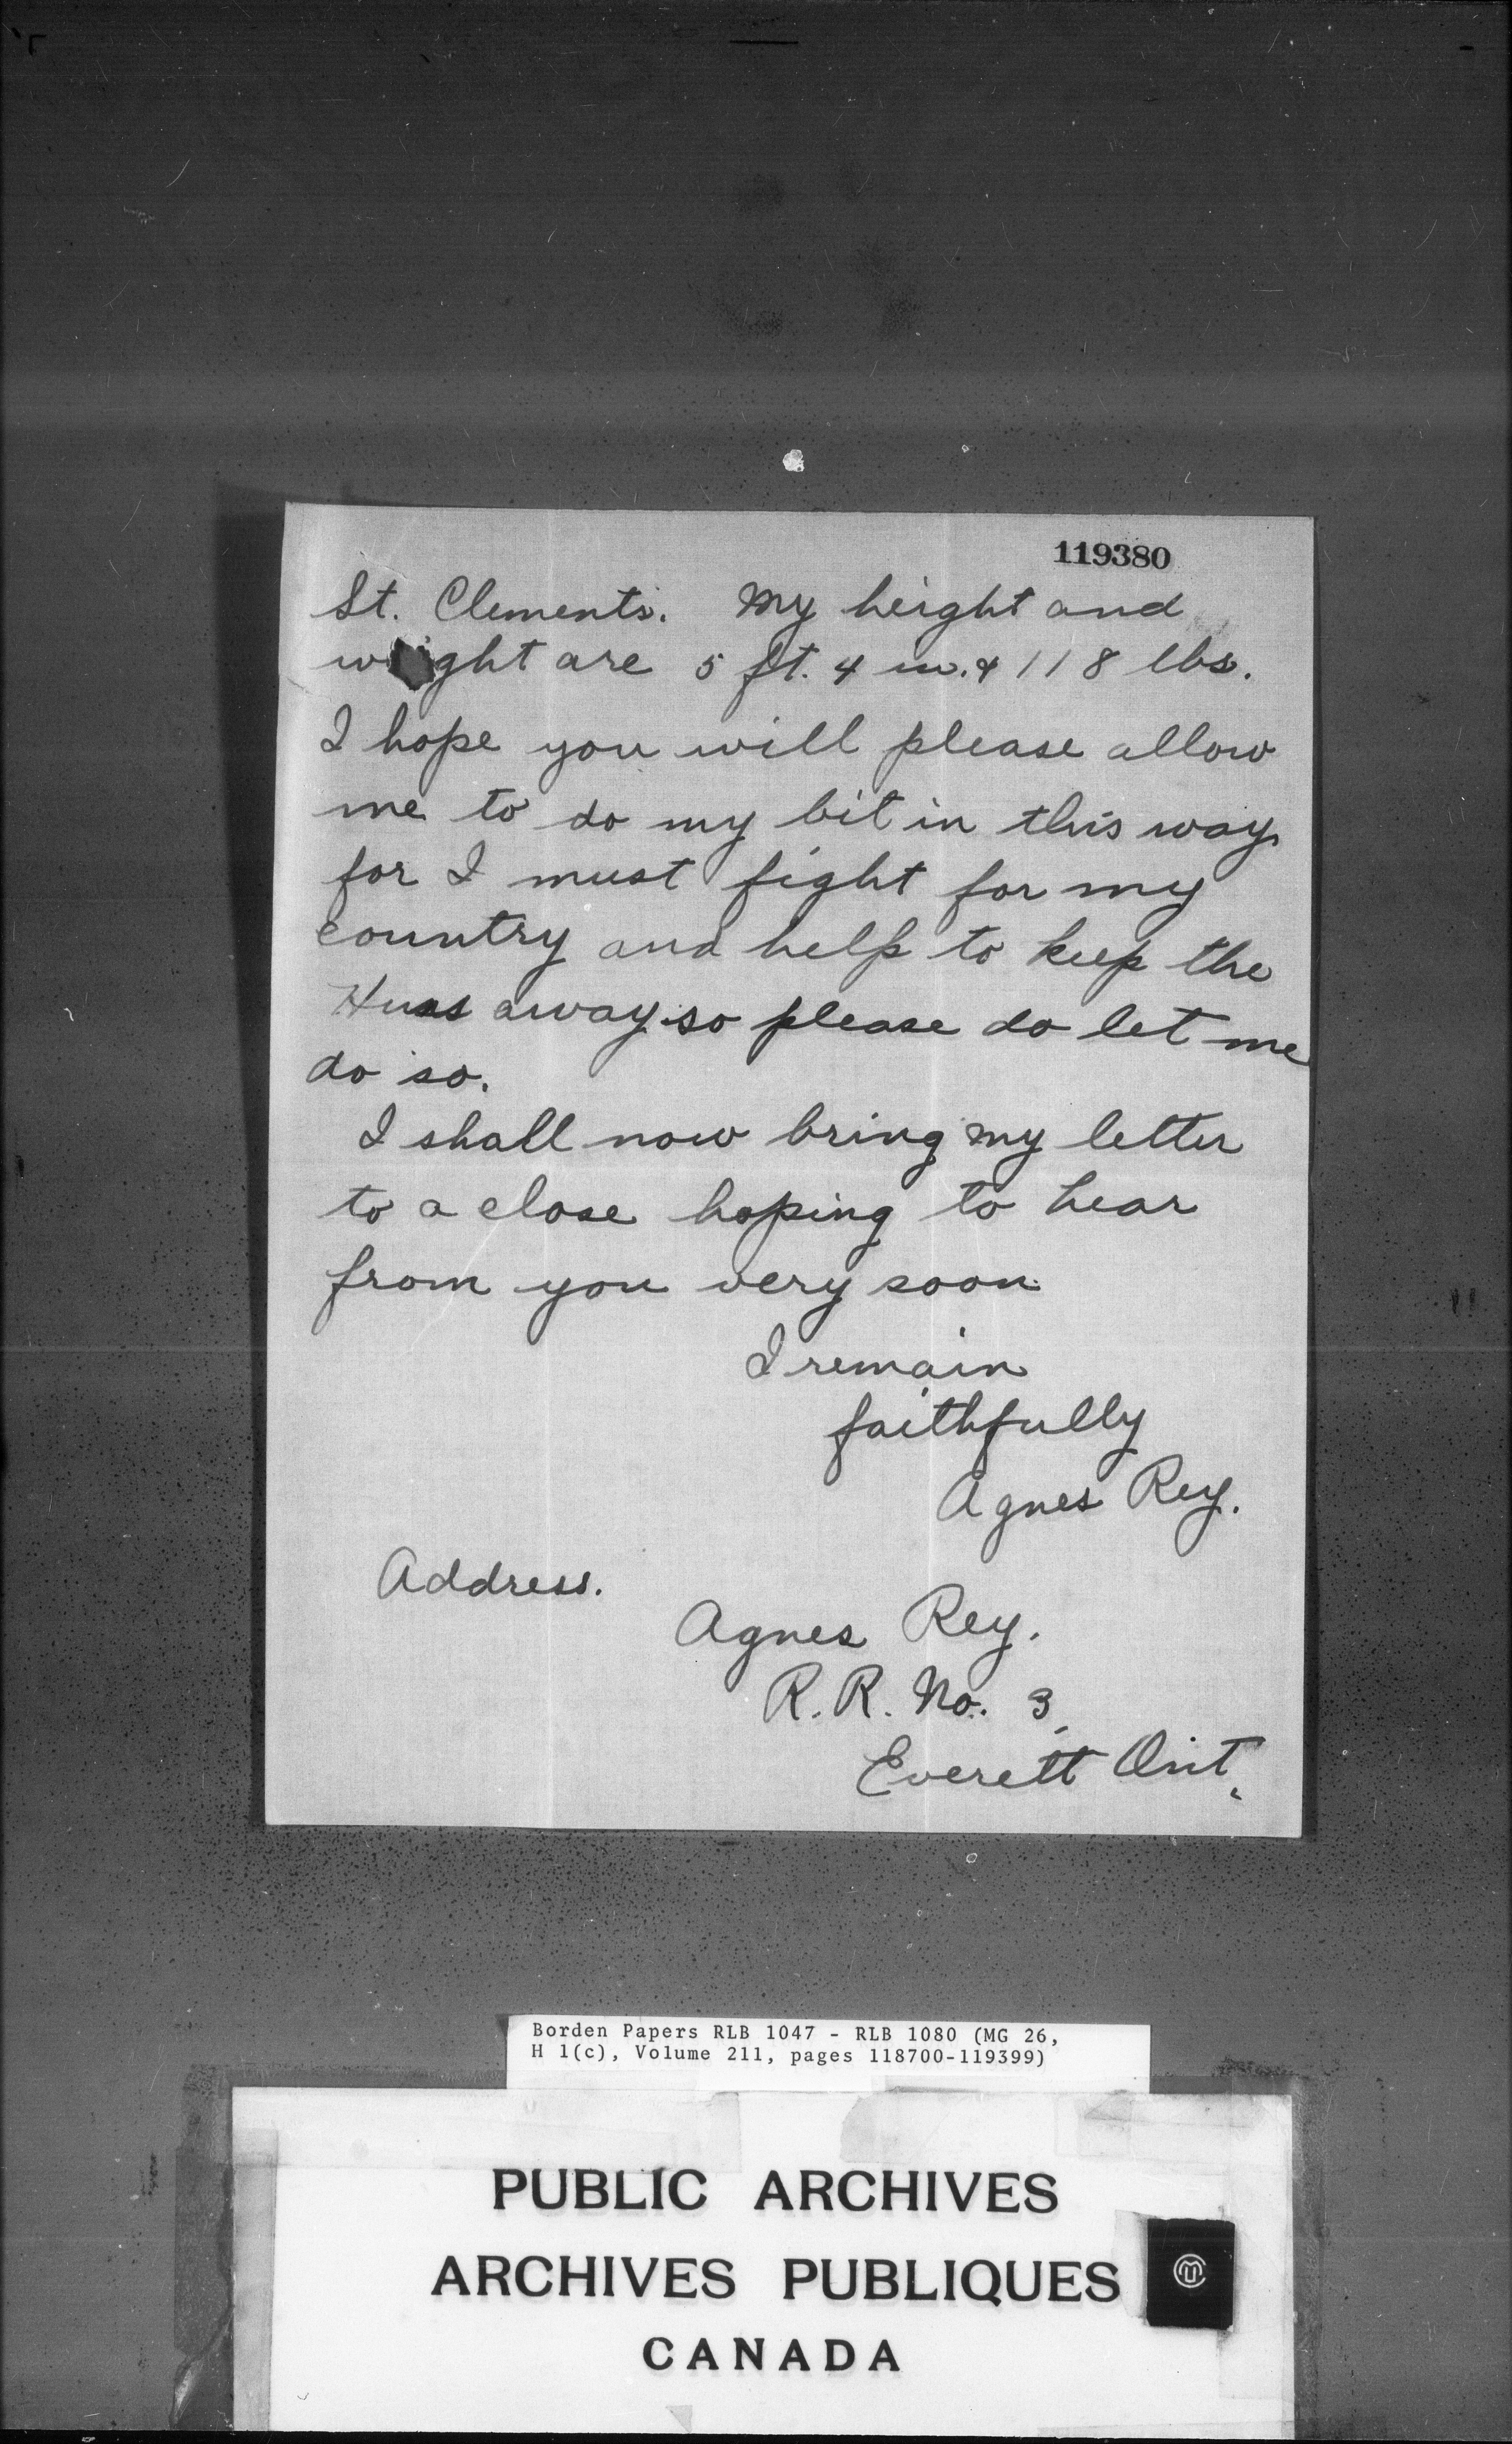 119380
St. Clements. My height and
weight are 5 ft. 4 in. & 118 lbs.
I hope you will please allow
me to do my bit in this way
for I must fight for my
country and help to keep the
Huns away so please do let me
do so.
I shall now bring my letter
to a close hoping to hear
from you very soon.
I remain
faithfully
Agnes Rey.
Address.
Agnes Rey.
R.R. No. 3,
Everett Ont.
Borden Papers RLB 1047 - RLB 1080 (MG 26,
H 1(c), Volume 211, pages 118700-119399)
PUBLIC ARCHIVES
ARCHIVES PUBLIQUES
CANADA